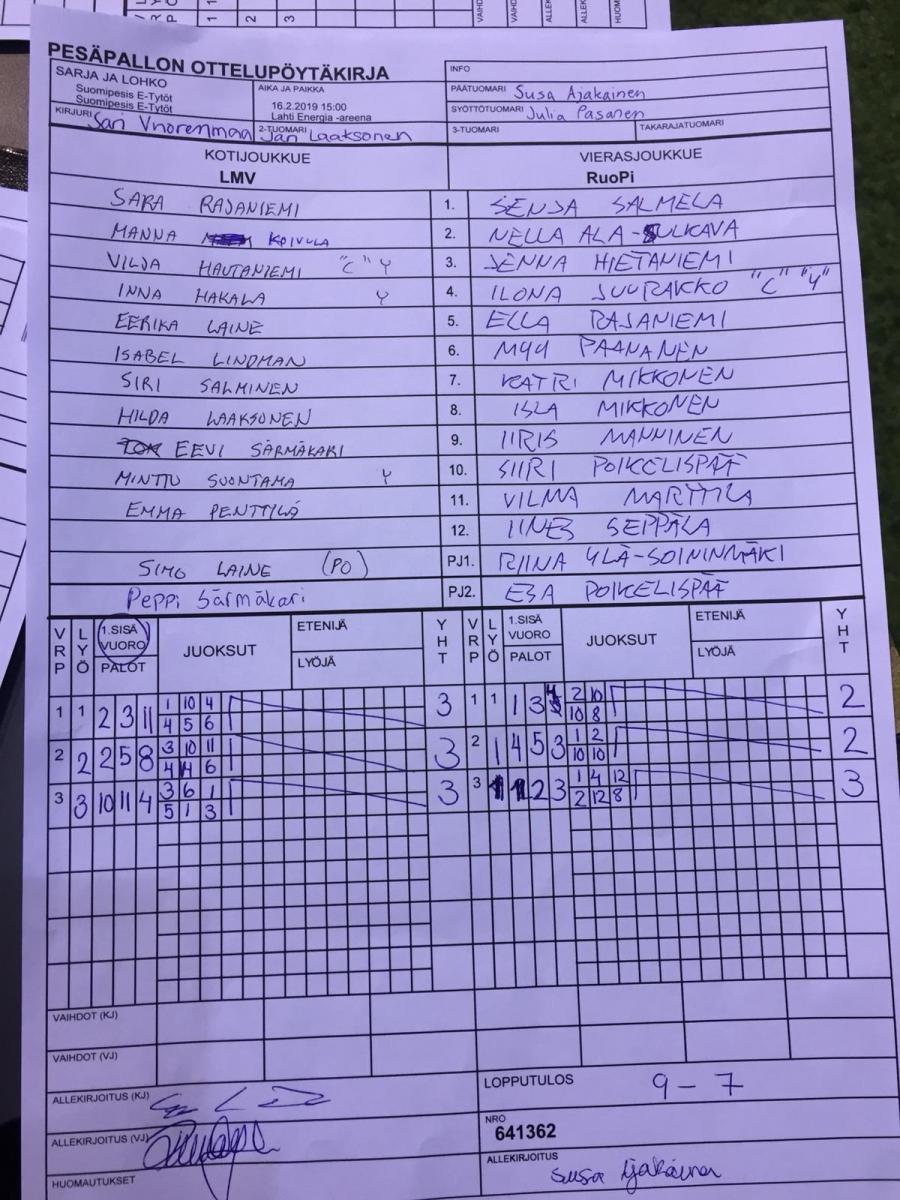 PESÄPALLON OTTELUPÖYTÄKIRJA
SARJA JA LOHKO
Suomipesis E-Tytöt
Suomipesis E-Tytöt
AIKA JA PAIKKA
16.2.2019 15:00
Lahti Energia -areena
INFO
PÄÄTUOMARI Susa Ajakainen
SYÖTTÖTUOMARI Julia Pasanen
KIRJURI Sari Vuorenmaa
2-TUOMARI Jari Laaksonen
3-TUOMARI
TAKARAJATUOMARI
KOTIJOUKKUE VIERASJOUKKUE
LMV RuoPi
SARA RAJANIEMI 1. SENJA SALMELA
MANNA KOIVULA 2. NELLA ALA-SULKAVA
VILJA HAUTANIEMI "C" Y 3. JENNA HIETANIEMI
INNA HAKALA Y 4. ILONA JUURAKKO "C" "Y"
EERIKA LAINE 5. ELLA RAJANIEMI
ISABEL LINDMAN 6. MYY PAANANEN
SIRI SALMINEN 7. KATRI MIKKONEN
HILDA LAAKSONEN 8. ISLA MIKKONEN
EEVI SÄRMÄKARI 9. IIRIS MANNINEN
MINTTU SUONTAMA Y 10. SIIRI POIKELISPÄÄ
EMMA PENTTILÄ 11. VILMA MARTTILA
12. IINES SEPPÄLÄ
SIMO LAINE (PO) PJ1. RIINA YLÄ-SOININMÄKI
Peppi Särmäkari PJ2. ESA POIKELISPÄÄ
VRP LYÖ 1.SISÄ VUORO PALOT JUOKSUT ETENIJÄ LYÖJÄ YHT VRP LYÖ 1.SISÄ VUORO PALOT JUOKSUT ETENIJÄ LYÖJÄ YHT
1 10 4 2 10
1 1 2 3 11 3 1 1 1 3 2
4 5 6 10 8
3 10 11 1 2
2 2 2 5 8 3 2 1 4 5 3 2
4 6 10 10
3 6 1 1 4 12
3 3 10 11 4 3 3 2 3 3
5 1 3 2 12 8
VAIHDOT (KJ)
VAIHDOT (VJ)
ALLEKIRJOITUS (KJ)
LOPPUTULOS 9 - 7
ALLEKIRJOITUS (VJ)
NRO
641362
HUOMAUTUKSET
ALLEKIRJOITUS Susa Ajakainen